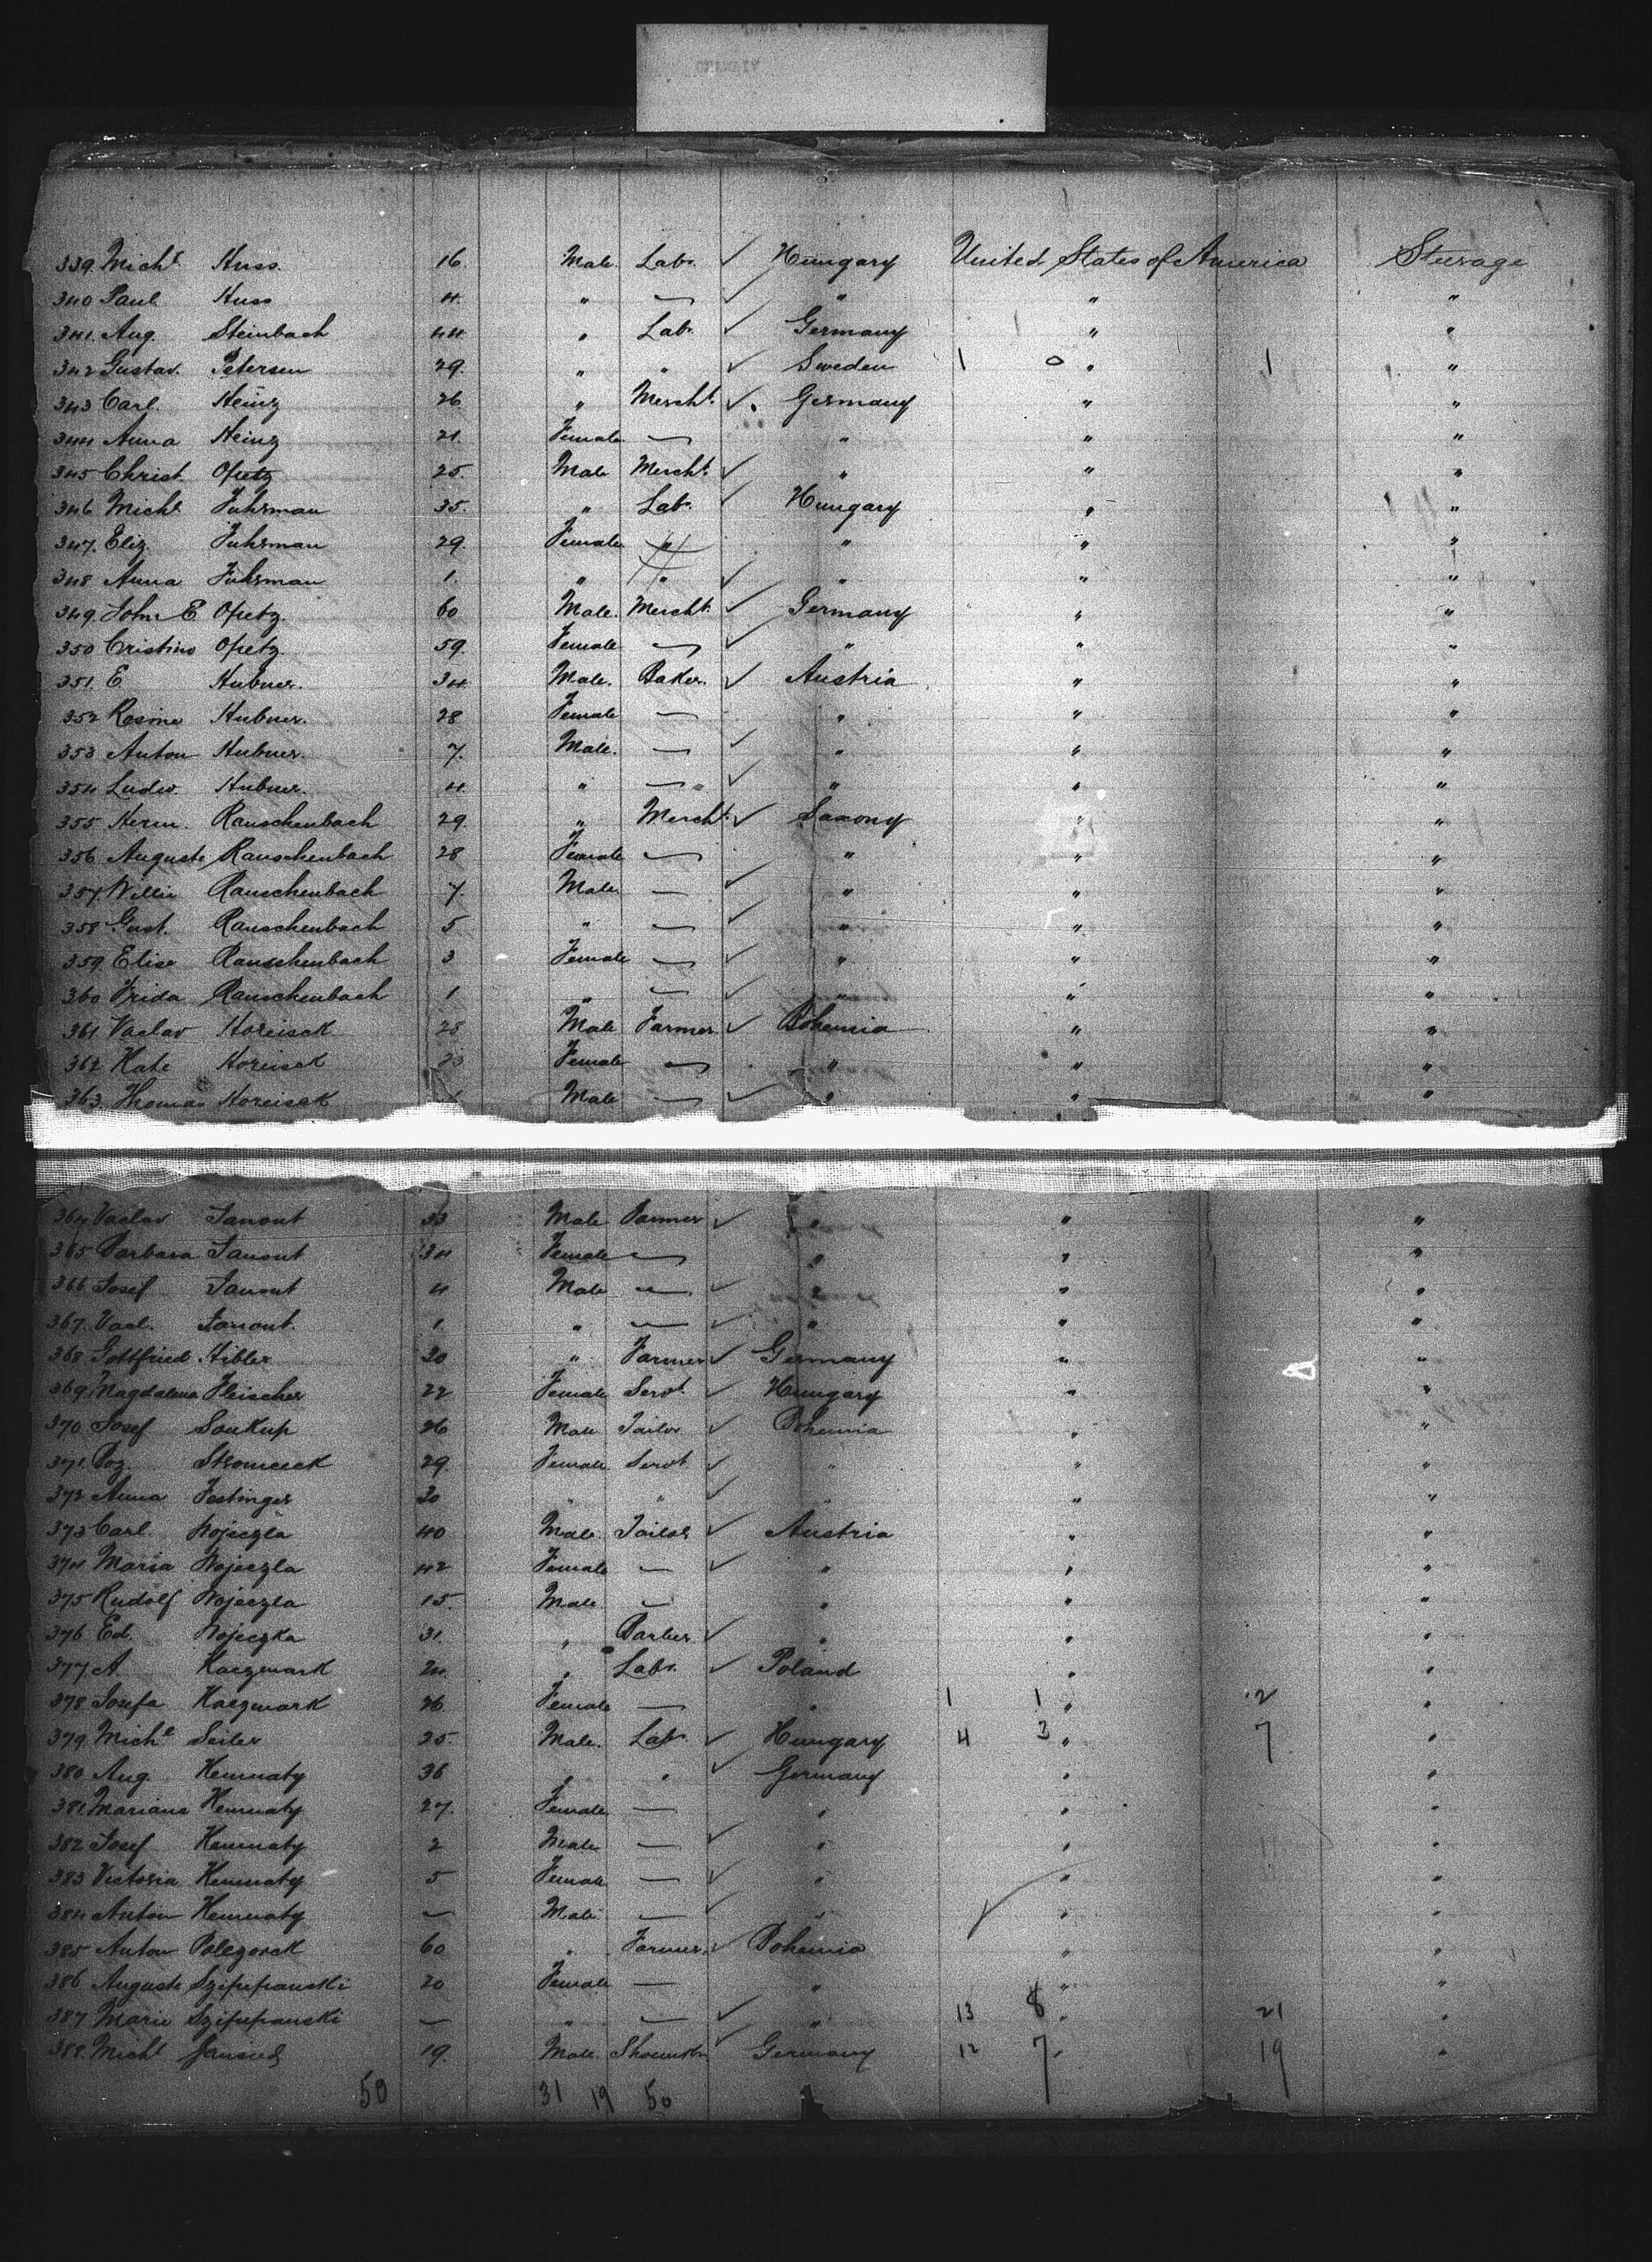 339. Michl Huss. 16. Male. Labr. ✓ Hungary United States of America Steerage
340 Paul Huss 4. " — ✓ " " "
341. Aug. Steinbach 44. " Labr ✓ Germany " "
342 Gustav. Petersen 29. " " ✓ Sweden 1 0 " 1 "
343 Carl. Heinz 26 " Mercht. ✓ Germany " "
344 Anna Heinz 21. Female — " " "
345 Christ. Opetz 25. Male Mercht. ✓ " " "
346 Michl Fuhrman 35. " Labr. ✓ Hungary " "
347. Eliz. Fuhrman 29. Female " " " "
348 Anna Fuhrman 1. " " ✓ " " "
349. John E Opetz. 60 Male. Mercht. ✓ Germany " "
350 Cristine Opetz. 59. Female — ✓ " " "
351. E Hubner. 34. Male. Baker. ✓ Austria " "
352 Rosine Hubner. 28 Female — " " "
353 Anton Hubner. 7. Male. — ✓ " " "
354 Ludw. Hubner. 4. " — ✓ " " "
355 Herm. Rauschenbach 29. " Mercht. ✓ Saxony " "
356 Auguste Rauschenbach 28 Female — " " "
357. Willie Rauschenbach 7. Male. — ✓ " " "
358 Gust. Rauschenbach 5 " — ✓ " " "
359. Elise Rauschenbach 3 Female — ✓ " " "
360 Frida Rauschenbach 1 " — ✓ " " "
361 Vaclav Horeisek 28 Male Farmer ✓ Bohemia " "
362 Kate Horeisek 23 Female — " " "
363. Thomas Horeisek Male — ✓ " " "
364 Vaclav Janout 33 Male Farmer ✓ " " "
365 Barbara Janout 34 Female — " " "
366 Josef Janout 4 Male — ✓ " " "
367. Vacl. Janout. 1. " — ✓ " " "
368 Gottfried Hibler 30 " Farmer ✓ Germany " "
369. Magdalena Fleischer 22 Female Servt. ✓ Hungary " "
370 Josef Soukup 26 Male Tailor ✓ Bohemia " "
371. Roz. Stromceck 29. Female. Servt ✓ " " "
372 Anna Festinger 30 " " ✓ " " "
373 Carl. Wojeczla 40 Male. Tailor ✓ Austria " "
374 Maria Wojeczla 42 Female — ✓ " " "
375 Rudolf Wojeczla 15. Male — " " "
376 Ed. Wojeczka 31. " Barber ✓ " " "
377 A. Kaczmark 24. " Labr. ✓ Poland " "
378 Josefa Kaczmark 26 Female — " 1 1 " 2 "
379. Michl Seiler 25 Male. Labr. ✓ Hungary 4 3 " 7 "
380 Aug. Kemnaty 36 " " ✓ Germany " "
381. Mariana Kemnaty 27. Female. — " " "
382 Josef Kemnaty 2 Male — ✓ " " "
383 Victoria Kemnaty 5 Female — ✓ " " "
384 Anton Kemnaty — Male — ✓ " " "
385 Anton 60 " Farmer. ✓ Bohemia " "
386 Auguste Szipupanski 20 Female — " " "
387 Marie Szipupanski — " — ✓ " 13 8 " 21 "
388. Michl 19. Male. Shoemkr ✓ Germany 12 7 " 19 "
50 31 19 50